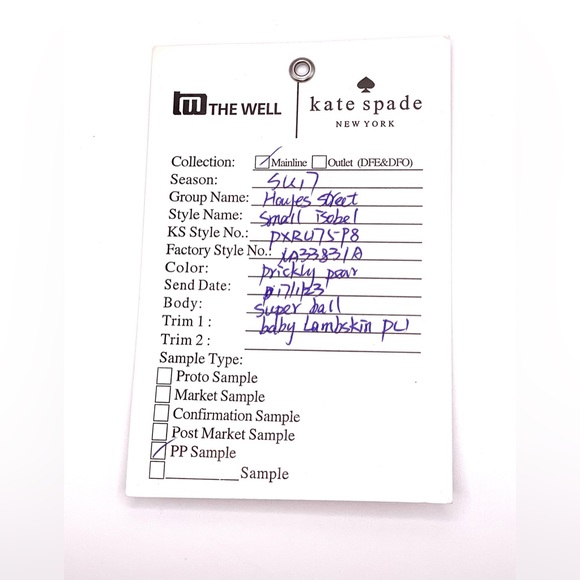 THE WELL
kate spade
NEW YORK
Collection: Mainline Outlet (DFE&DFO)
Season: SU17
Group Name: Hayes street
Style Name: Small isobel
KS Style No.: PXRU75-P8
Factory Style No.: 1A33831A
Color: prickly pear
Send Date: 17/1/23
Body: super ball
Trim 1 : baby Lambskin PU
Trim 2 :
Sample Type:
Proto Sample
Market Sample
Confirmation Sample
Post Market Sample
PP Sample
________ Sample